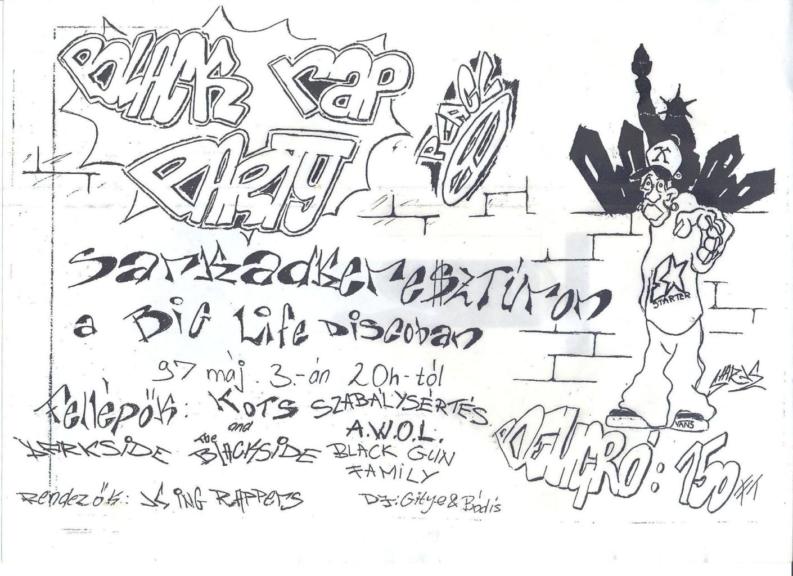 BLACK RAP
PARTY
PEACE
Sarkadkeresztúron
a Big Life Discoban
97 máj. 3.-án 20h-tól
Fellépők: Kots SZABÁLYSÉRTÉS
and A.W.O.L.
DARKSIDE The BLACKSIDE BLACK GUN
FAMILY
Rendezők: ING RAPPERS
DJ: Gitye & Bódis
STARTER
VANS
BEUGRÓ: 150 Ft